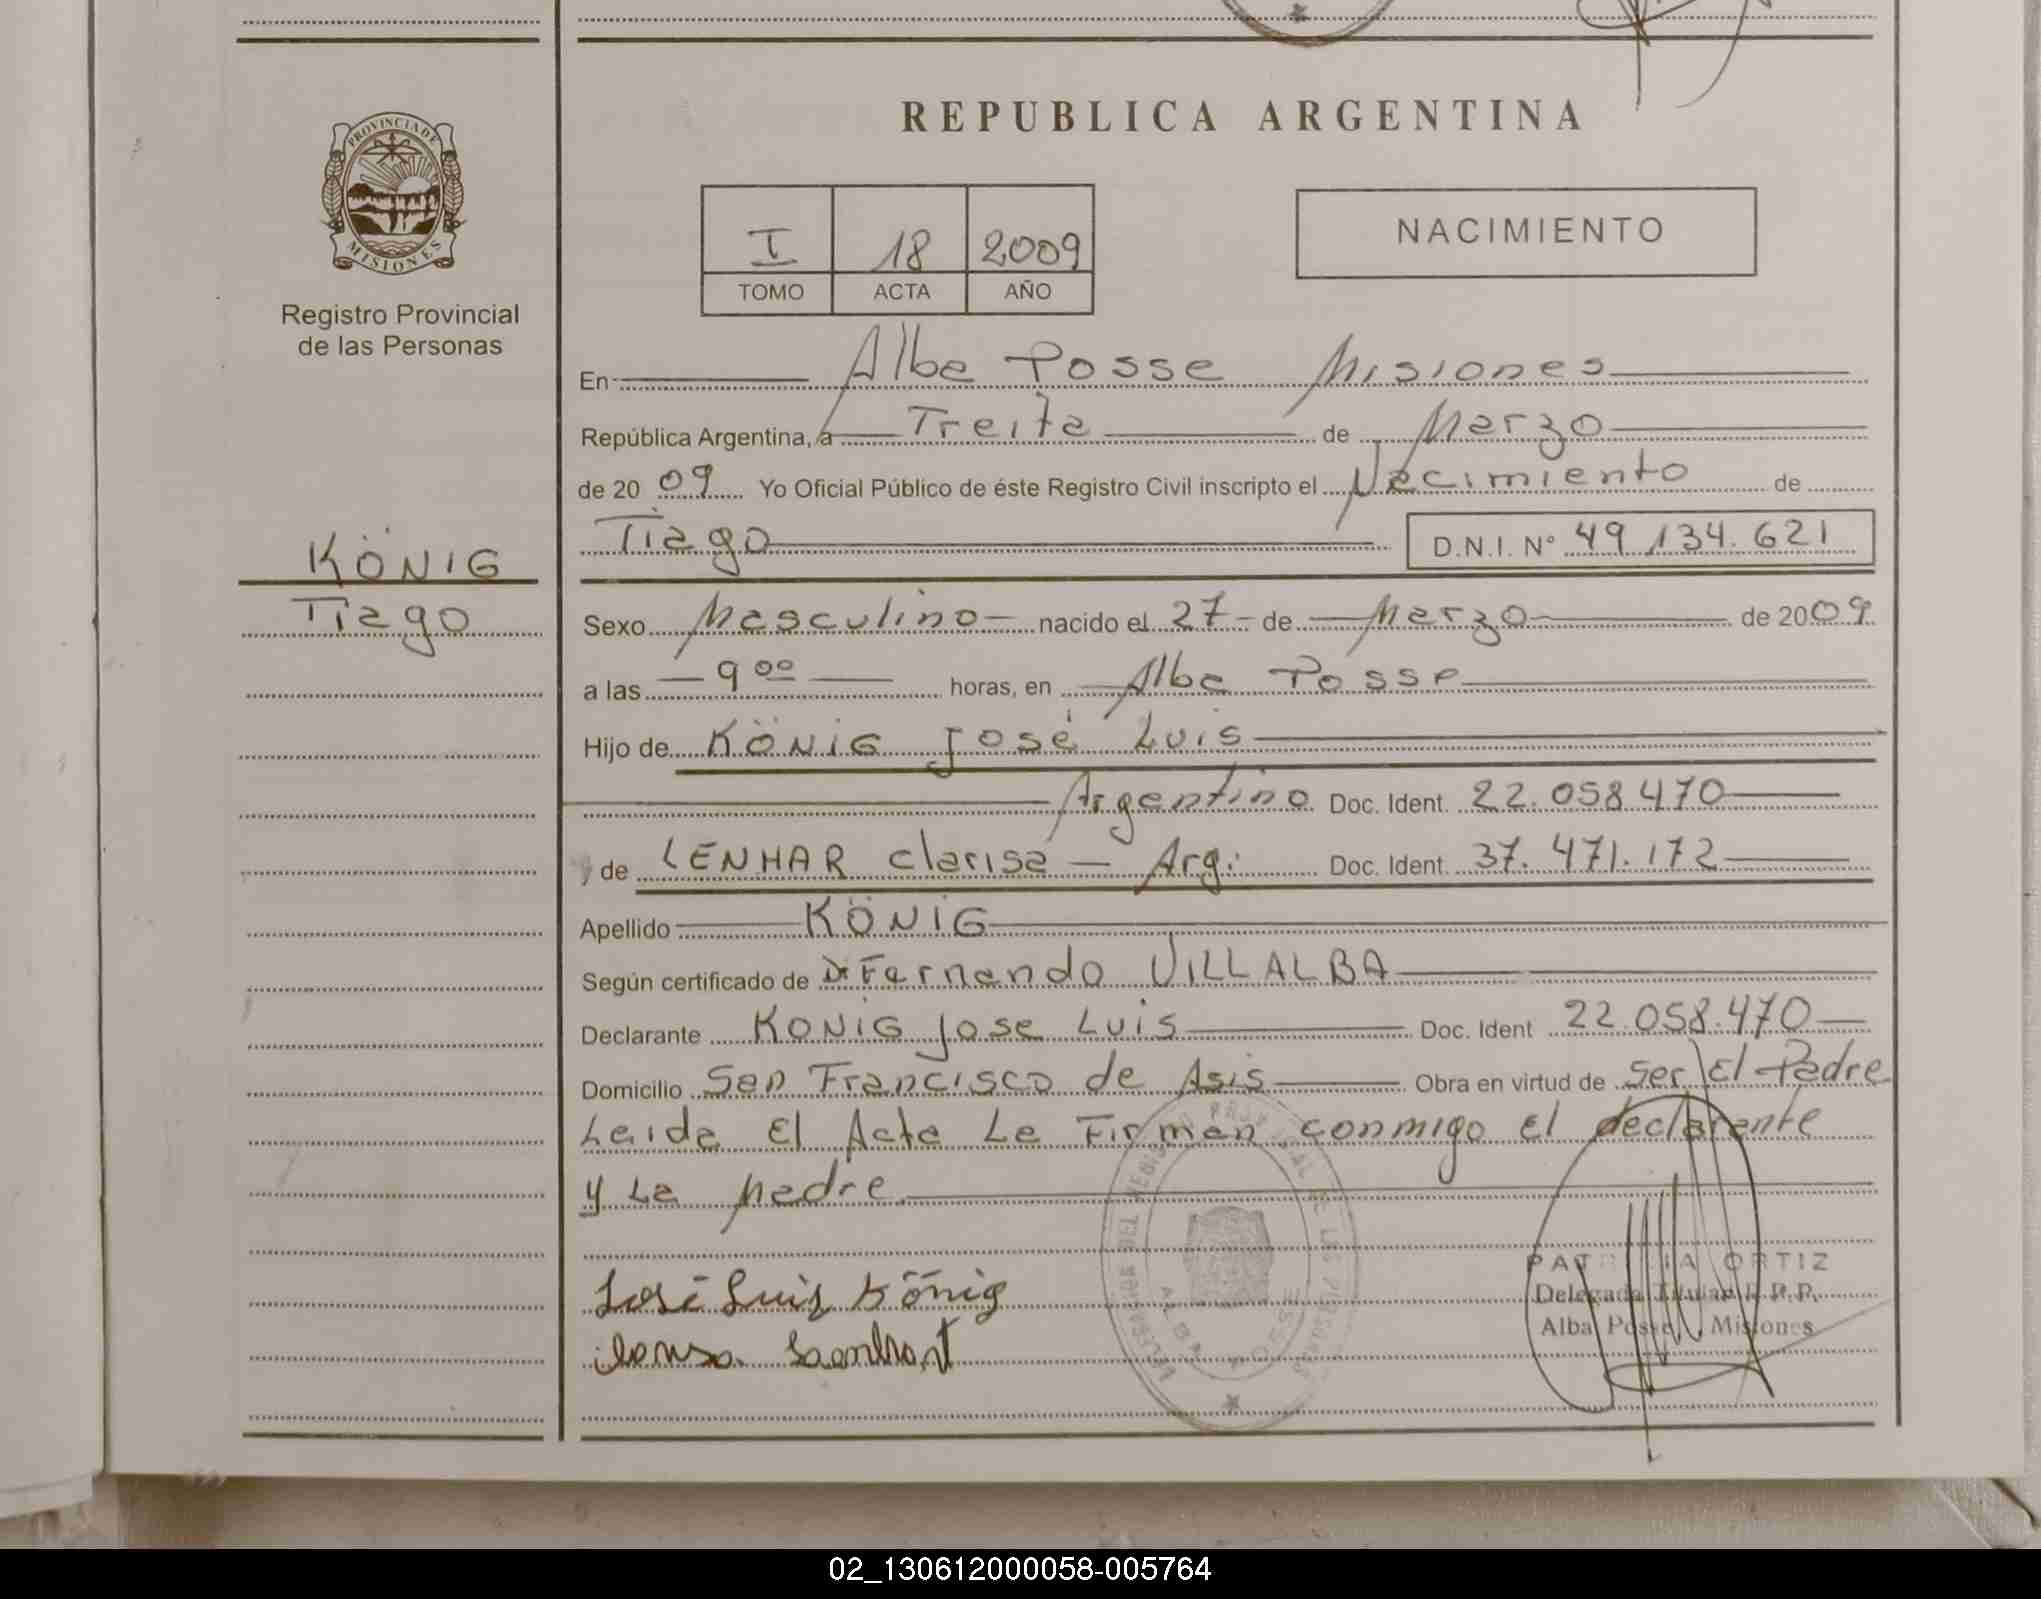 REPUBLICA ARGENTINA
PROVINCIA DE
MISIONES
Registro Provincial
de las Personas
I 18 2009
TOMO ACTA AÑO
NACIMIENTO
En Alba Posse Misiones
República Argentina, a Treita de Marzo
de 20 09 Yo Oficial Público de éste Registro Civil inscripto el Nacimiento de
Tiago D.N.I. N° 49.134.621
KÖNIG
Tiago
Sexo Masculino nacido el 27 de Marzo de 2009
a las 9 00 horas, en Alba Posse
Hijo de KÖNIG José Luis
Argentino Doc. Ident. 22.058.470
y de LENHAR Clarisa - Arg. Doc. Ident. 37.471.172
Apellido KÖNIG
Según certificado de Dr Fernando VILLALBA
Declarante KONIG Jose Luis Doc. Ident 22.058.470
Domicilio San Francisco de Asis Obra en virtud de Ser El Padre
Leida El Acta La Firman conmigo el declarante
y La Madre
José Luis König
PATRICIA ORTIZ
Delegada Titular R.P.P.
Alba Posse Misiones
DEL REGISTRO PROVINCIAL DE LAS PERSONAS
ALBA POSSE
02_130612000058-005764